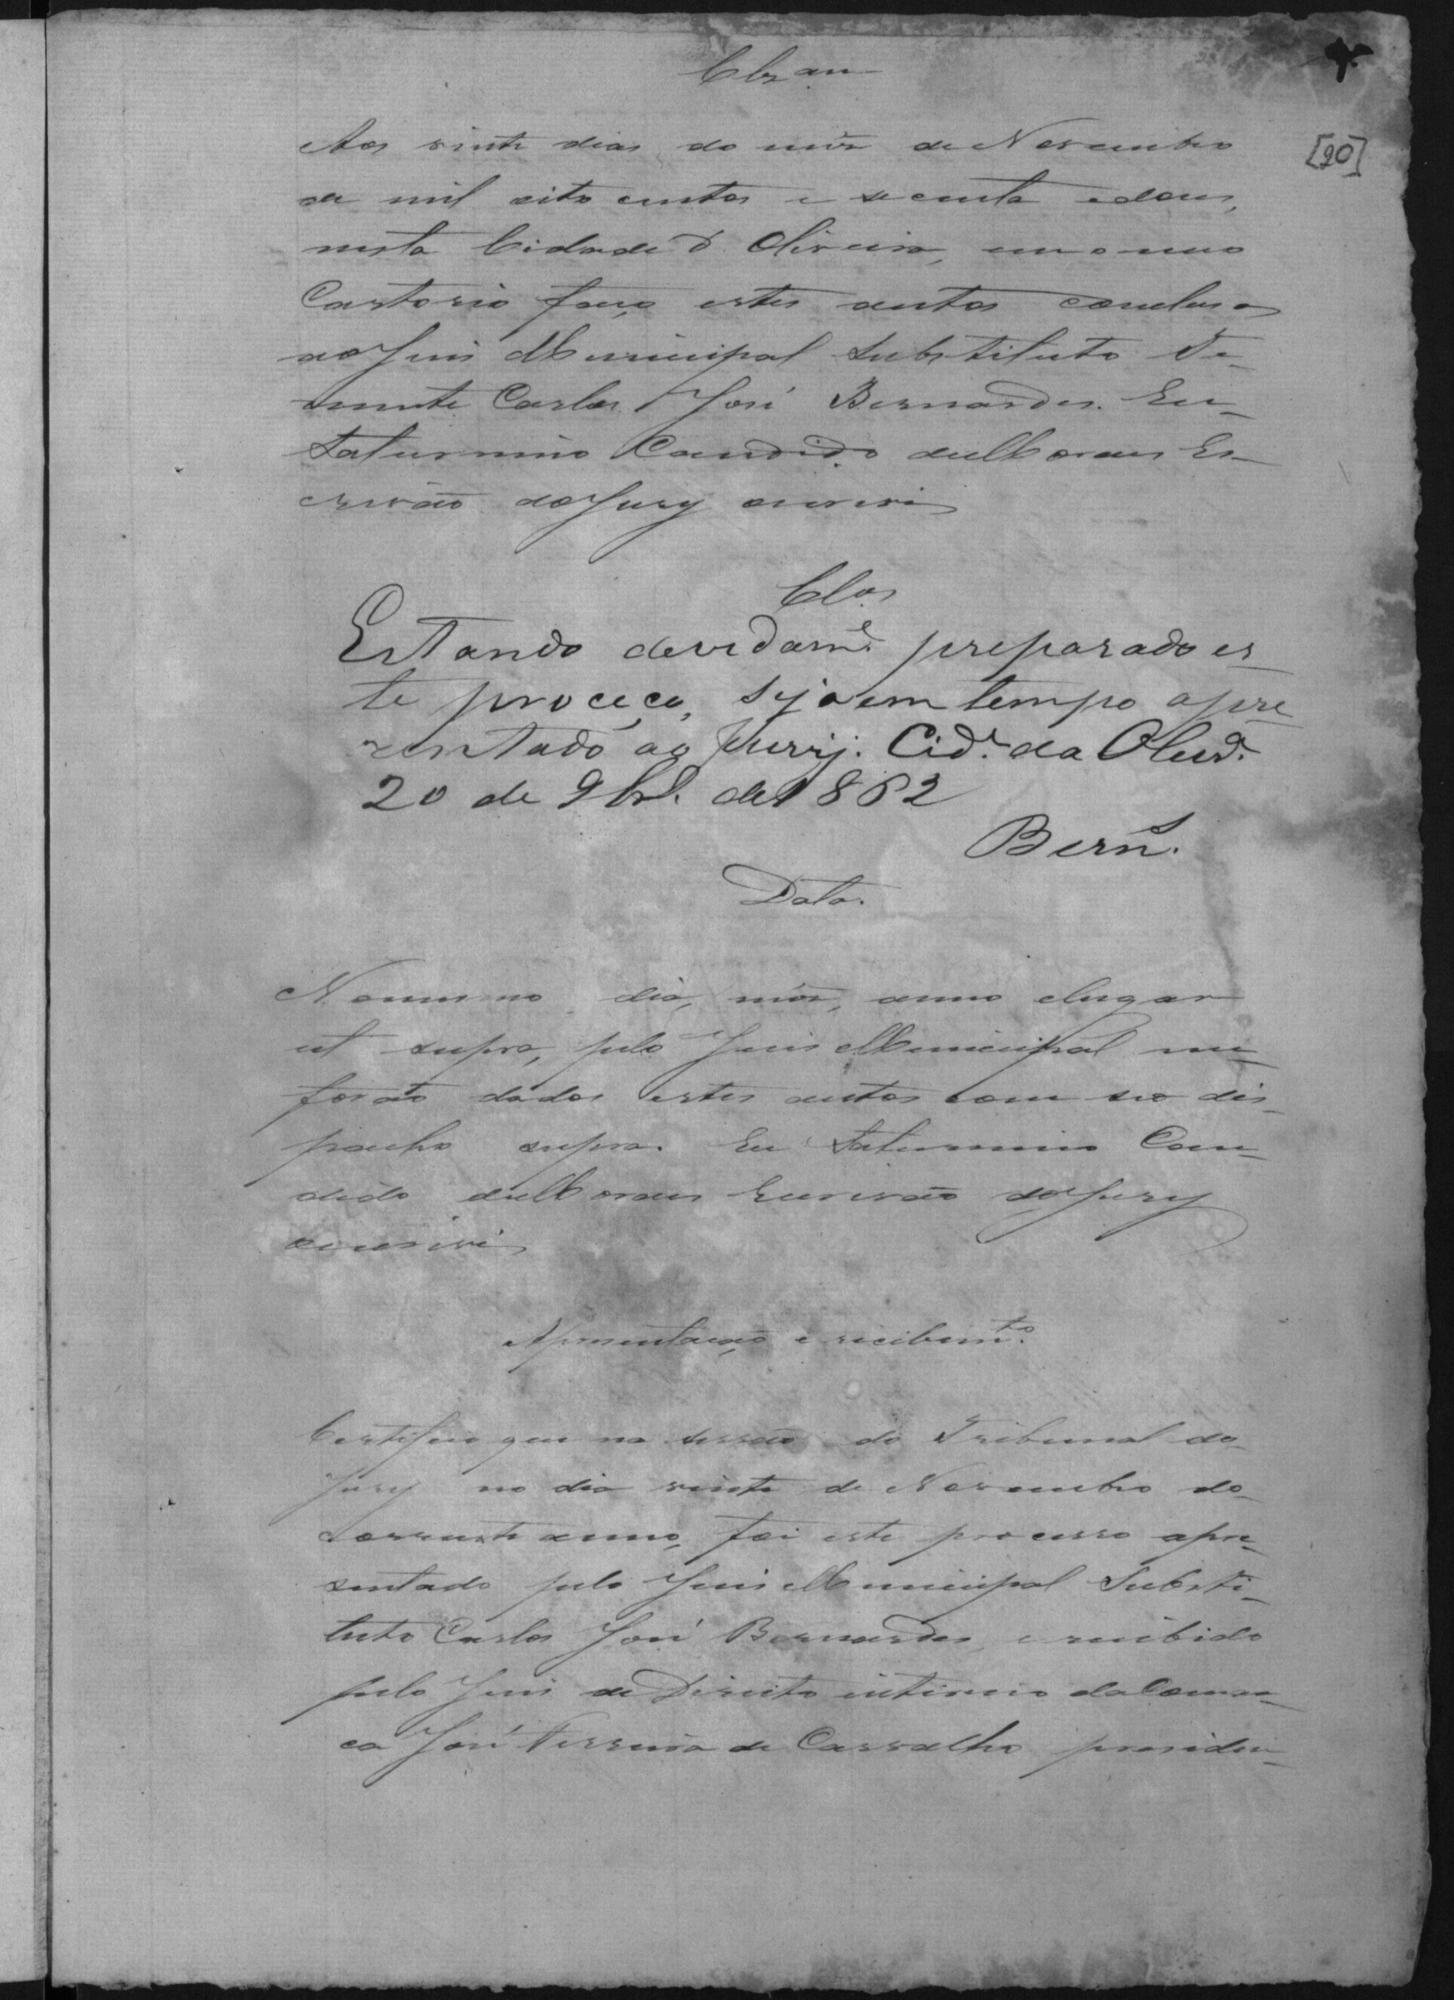 Clzam
[20]
Aos vinte dias do mês de Novembro
de mil oito centos e secenta e dous,
nesta Cidade d' Oliveira, em o meo
Cartorio faço estes autos concluzos
ao Juis Municipal Substituto Te-
nente Carlos José Bernardes. Eu
Saturnino Candido de Moraes Es-
crivão do Jury escrevi
Clos
Estando devidame. preparado es-
te proceço, seja em tempo apre
zentado ao Jurij. Cide. da Olivra.
20 de 9br. de 1862
Berns.
Data.
No mesmo dia, mês, anno e lugar
ut supra, pelo Juis Municipal me
forão dados estes autos com seo des-
pacho supra. Eu Saturnino Can-
dido de Moraes Escrivão do Jury
escrevi
Apresentação e recibimto.
Certifico que na sessão do Tribunal do
Jury no dia vinte de Novembro do
corrente anno, foi este processo apre-
sentado pelo Juis Municipal Substi-
tuto Carlos José Bernardes, e recibido
pelo Juis de Direito interino da Comar-
ca José Ferreira de Carvalho presiden-